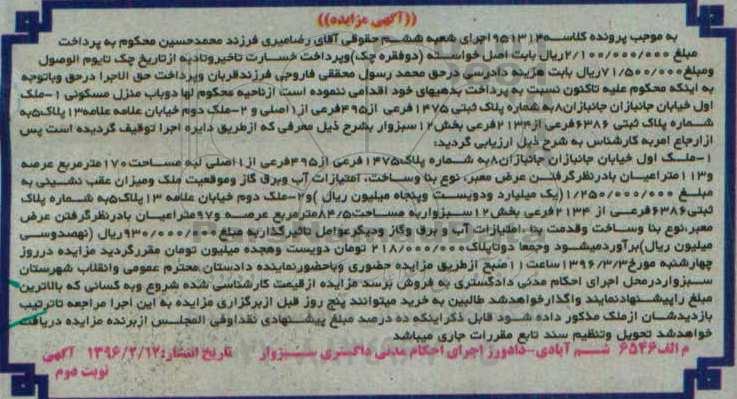 ((آگهی مزایده))
به موجب پرونده کلاسه۹۵۱۳۱۴اجرای شعبه ششم حقوقی آقای رضامیری فرزند محمدحسین محکوم به پرداخت
مبلغ ۲/۱۰۰/۰۰۰/۰۰۰ریال بابت اصل خواسته (دوفقره چک)وپرداخت خسارت تاخیروتادیه ازتاریخ چک تایوم الوصول
ومبلغ۷۱/۵۰۰/۰۰۰ریال بابت هزینه دادرسی درحق محمد رسول محققی فاروجی فرزندقربان وپرداخت حق الاجرا درحق وباتوجه
به اینکه محکوم علیه تاکنون نسبت به پرداخت بدهیهای خود اقدامی ننموده است ازناحیه محکوم لها دوباب منزل مسکونی ۱-ملک
اول خیابان جانبازان جانبازان۸به شماره پلاک ثبتی ۱۴۷۵فرعی از۴۹۵فرعی از۱اصلی و ۲-ملک دوم خیابان علامه علامه۱۳پلاک۵به
شماره پلاک ثبتی ۶۳۸۶فرعی از۲۱۳۴فرعی بخش۱۲سبزوار بشرح ذیل معرفی که ازطریق دایره اجرا توقیف گردیده است پس
ازارجاع امربه کارشناس به شرح ذیل ارزیابی گردید:
۱-ملک اول خیابان جانبازان جانبازان۸به شماره پلاک۱۴۷۵فرعی از۴۹۵فرعی از۱اصلی لبه مساحت۱۷۰مترمربع عرصه
و۱۱۳متراعیان بادرنظرگرفتن عرض معبر، نوع بنا وساخت، امتیازات آب وبرق گاز وموقعیت ملک ومیزان عقب نشینی به
مبلغ ۱/۲۵۰/۰۰۰/۰۰۰(یک میلیارد ودویست وپنجاه میلیون ریال )و۲-ملک دوم خیابان علامه ۱۳پلاک۵به شماره پلاک
ثبتی۶۳۸۶فرعی از ۲۱۳۴فرعی بخش۱۲سبزواربه مساحت۸۴/۵مترمربع عرصه و۹۷متراعیان بادرنظرگرفتن عرض
معبر،نوع بنا وساخت وقدمت بنا ،امتیازات آب و برق وگاز ودیگرعوامل تاثیرگذاربه مبلغ ۹۳۰/۰۰۰/۰۰۰ریال (نهصدوسی
میلیون ریال)برآوردمیشود وجمعا دوتاپلاک۲۱۸/۰۰۰/۰۰۰ تومان دویست وهجده میلیون تومان مقررگردید مزایده درروز
چهارشنبه مورخ۱۳۹۶/۳/۳ساعت۱۱صبح ازطریق مزایده حضوری وباحضورنماینده دادستان محترم عمومی وانقلاب شهرستان
سبزواردرمحل اجرای احکام مدنی دادگستری به فروش برسد مزایده ازقیمت کارشناسی شده شروع وبه کسانی که بالاترین
مبلغ راپیشنهادنمایند واگذارخواهدشد طالبین به خرید میتوانند پنج روز قبل ازبرگزاری مزایده به این اجرا مراجعه تاترتیب
بازدیدشان ازملک مذکور داده شود قابل ذکراینکه ده درصد مبلغ پیشنهادی نقداوفی المجلس ازبرنده مزایده دریافت
خواهدشد تحویل وتنظیم سند تابع مقررات جاری میباشد
م الف۶۵۴۶ شم آبادی-دادورز اجرای احکام مدنی دادگستری سبزوار تاریخ انتشار:۱۳۹۶/۲/۱۲ آگهی
نوبت دوم